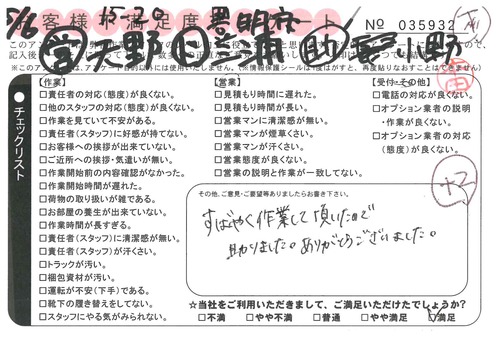 5/6 15-30 豊明市
お客様満足度アンケート
No 035932
営 大野 日 三浦 助 小野
★チェックリスト
【作業】
□責任者の対応(態度)が良くない。
□他のスタッフの対応(態度)が良くない。
□作業を見ていて不安がある。
□責任者(スタッフ)に好感が持てない。
□お客様への挨拶が出来ていない。
□ご近所への挨拶・気遣いが無い。
□作業開始前の内容確認がなかった。
□作業開始時間が遅れた。
□荷物の取り扱いが雑である。
□お部屋の養生が出来ていない。
□作業時間が長すぎる。
□責任者(スタッフ)に清潔感が無い。
□責任者(スタッフ)が汗くさい。
□トラックが汚い。
□梱包資材が汚い。
□運転が不安(下手)である。
□靴下の履き替えをしてない。
□スタッフにやる気がみられない。
【営業】
□見積もり時間に遅れた。
□見積もり時間が長い。
□営業マンに清潔感が無い。
□営業マンが煙草くさい。
□営業マンが汗くさい。
□営業態度が良くない。
□営業の説明と作業が一致してない。
【受付・その他】
□電話の対応が良くない。
□オプション業者の説明
・作業が良くない。
□オプション業者の対応
(態度)が良くない。
+2
その他、ご意見・ご要望等ありましたらお書き下さい。
すばやく作業して頂いたので
助かりました。ありがとうございました。
☆当社をご利用いただきまして、ご満足いただけたでしょうか?
□不満 □やや不満 □普通 □やや満足 □満足